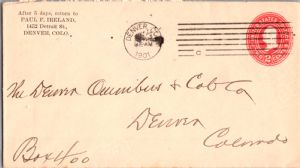 After 5 days, return to
PAUL F. IRELAND,
1452 Detroit St.,
DENVER, COLO.
DENVER
1901
The Denver Omnibus & Cab Co
Denver
Colorado
Box 1100